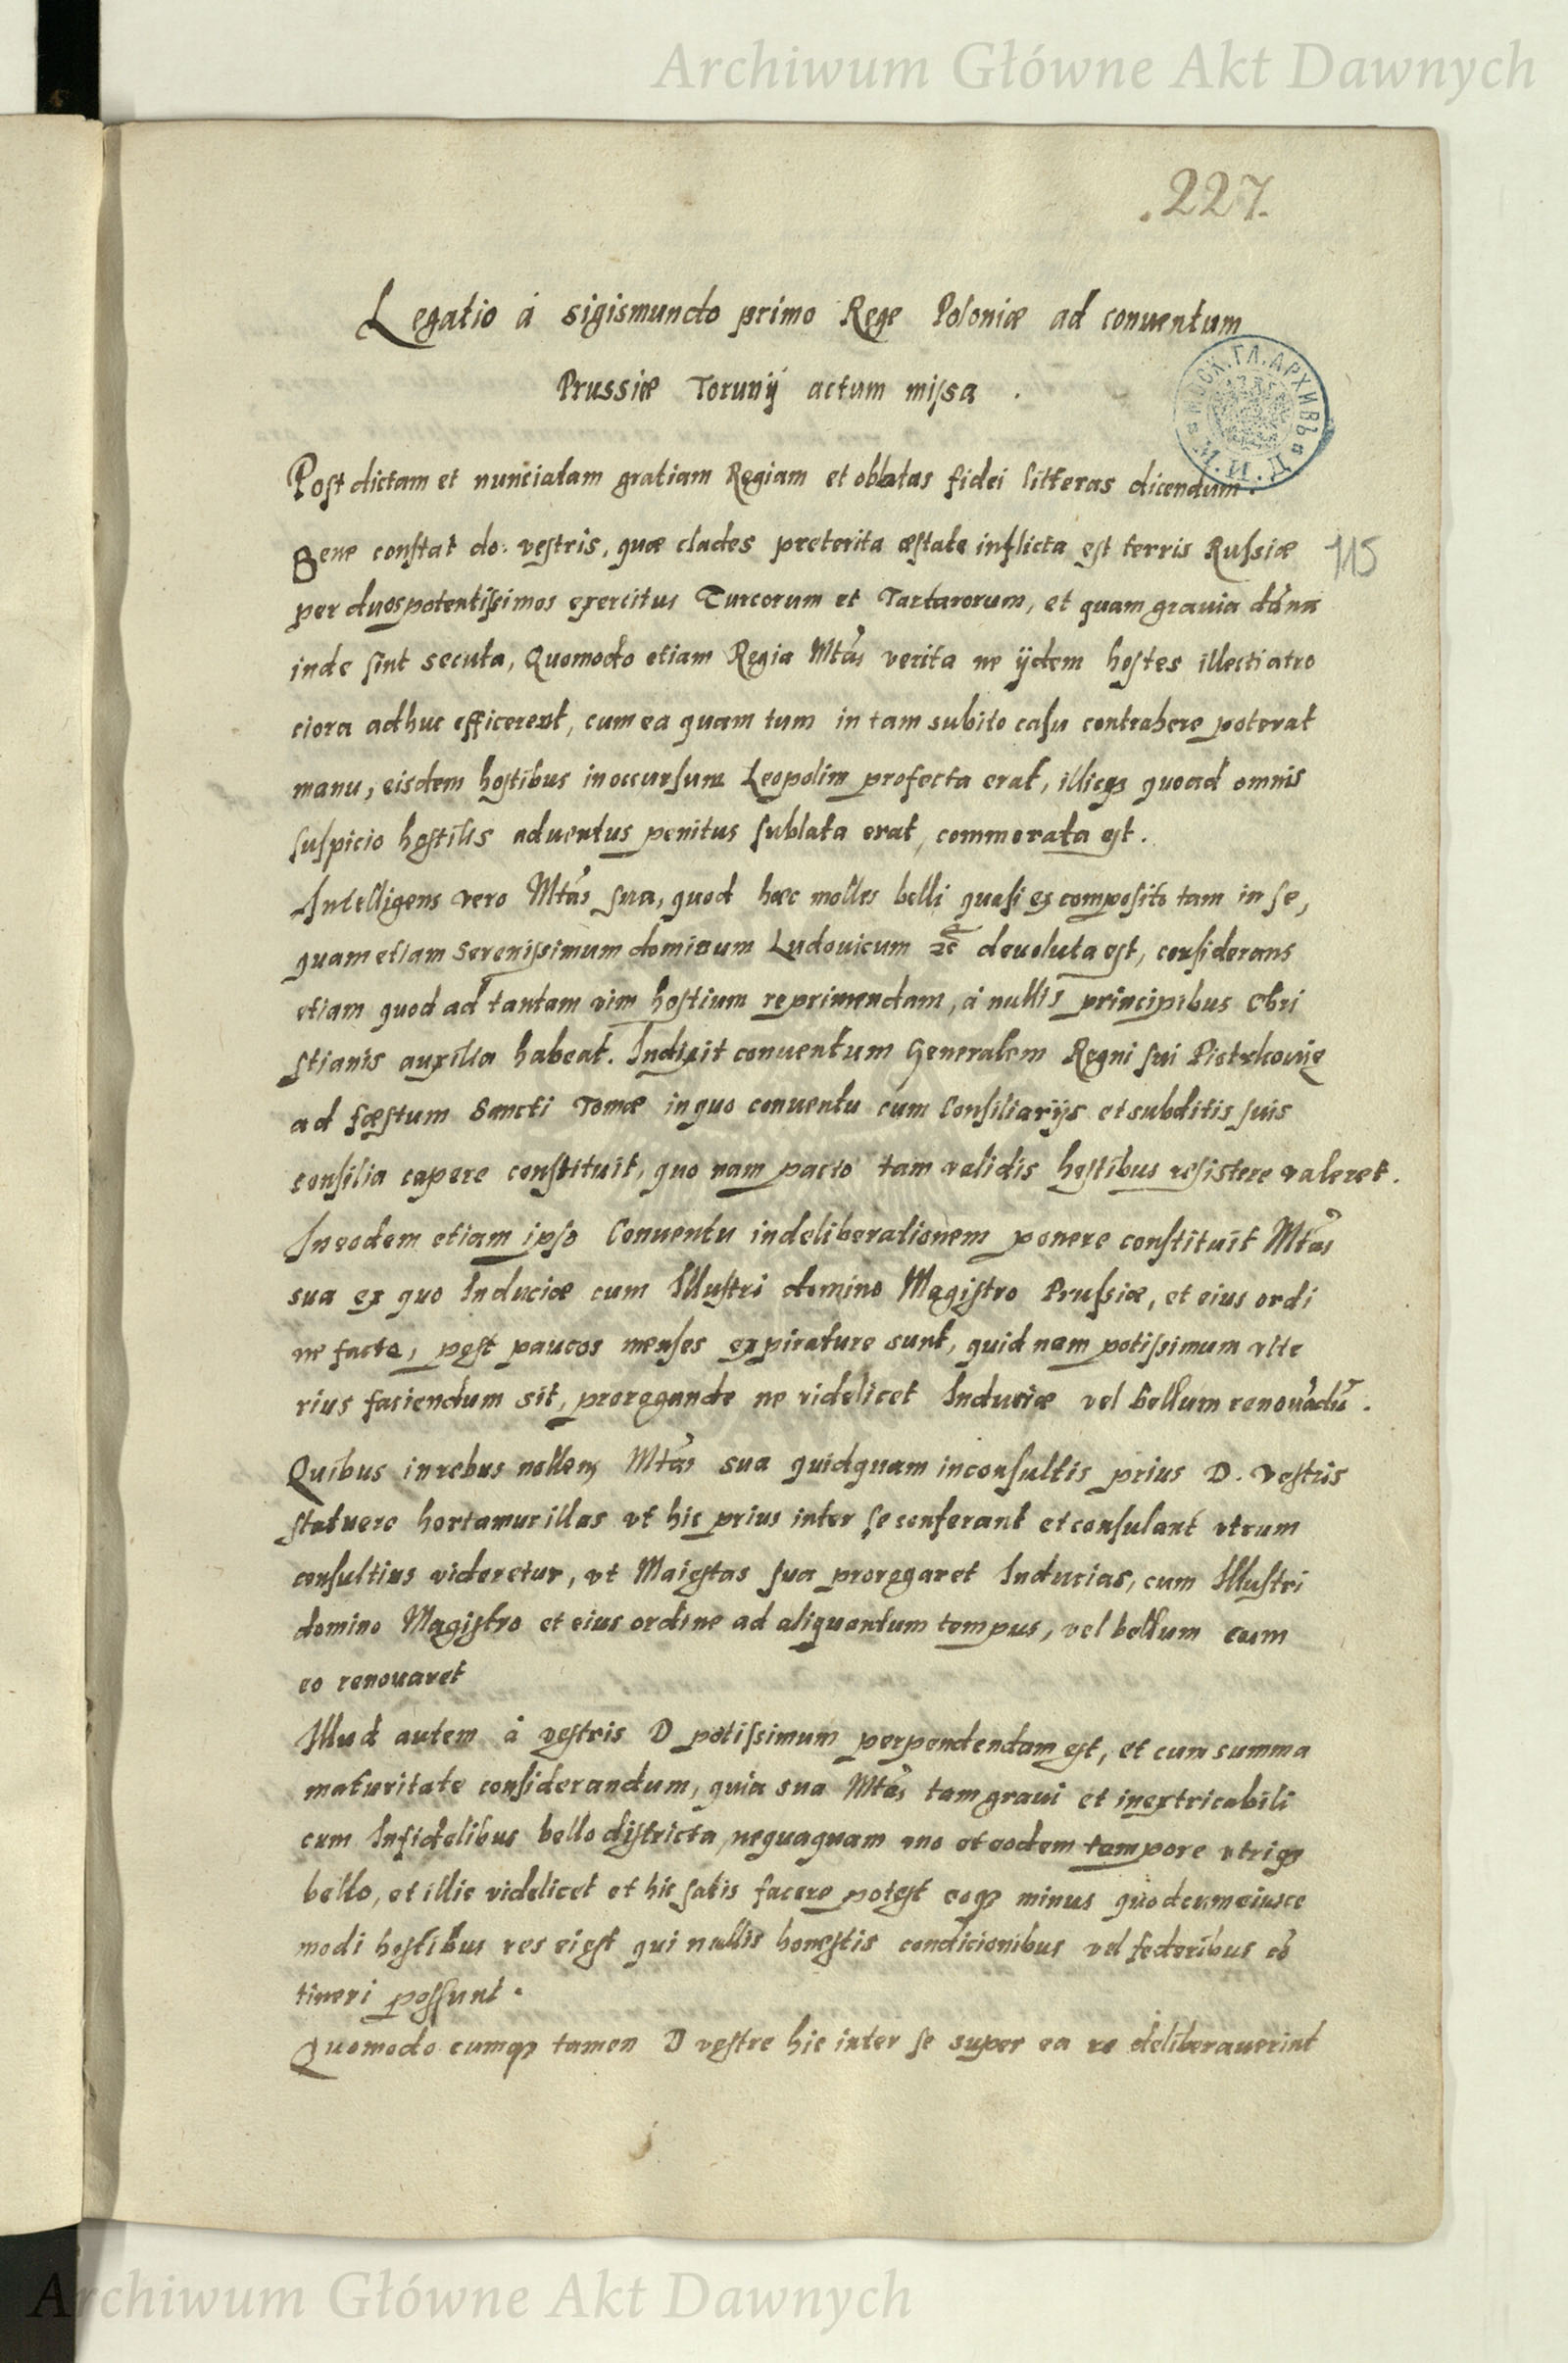 Archiwum Główne Akt Dawnych
.227.
Legatio á sigismundo primo Rege Poloniæ ad conuentum
Prussiæ Torunij actum missa .
МОСК. ГЛ. АРХИВЪ
Post dictam et nunciatam gratiam Regiam et oblatas fidei litteras dicendum.
Bene constat do: vestris, quæ clades preterita æstate inflicta est terris Russiæ
115
per duos potentissimos exercitus Turcorum et Tartarorum, et quam grauia dāna
inde sint secuta, Quomodo etiam Regia Mtās verita ne ijdem hostes illecti atro
ciora adhuc efficerent, cum ea quam tum in tam subito casu contrahere poterat
manu, eisdem hostibus in occursum Leopolim profecta erat, illicq3 quoad omnis
suspicio hostilis aduentus penitus sublata erat, commorata est.
Intelligens vero Mtās sua, quod hæc molles belli quasi ex composito tam in se,
quam etiam Serenissimum dominum Ludouicum etc deuoluta est, considerans
etiam quod ad tantam vim hostium reprimendam, á nullis principibus Chri
stianis auxilia habeat. Indixit conuentum Generalem Regni sui Pietrkouiæ
ad fæstum Sancti Tomæ in quo conuentu cum Consiliarijs et subditis suis
consilia capere constituit, quo nam pacto tam validis hostibus resistere valeret.
In eodem etiam ipso Conuentu in deliberationem ponere constituit Mtās
sua ex quo Induciæ cum Illustri domino Magistro Prussiæ, et eius ordi
ne facte, post paucos menses expirature sunt, quid nam potissimum vlte
rius faciendum sit, prorogande ne videlicet Induciæ vel bellum renouādū.
Quibus in rebus nollens Mtās sua quidquam inconsultis prius D. vestris
statuere hortamur illas vt hic prius inter se conferant et consulant vtrum
consultius videretur, vt Maiestas sua prorogaret Inducias, cum Illustri
domino Magistro et eius ordine ad aliquantum tempus, vel bellum cum
eo renouaret
Illud autem á vestris D potissimum perpendendam est, et cum summa
maturitate considerandum, quia sua Mtās tam graui et inextricabili
cum Infidelibus bello districta, nequaquam vno et eodem tempore vtriq3
bello, et illic videlicet et hic satis facere potest eoq3 minus quod cum eiusce
modi hostibus res ei est qui nullis honestis condicionibus vel federibus cō
tineri possunt.
Quomodo cumq3 tamen D vestre hic inter se super ea re deliberauerint
Archiwum Główne Akt Dawnych